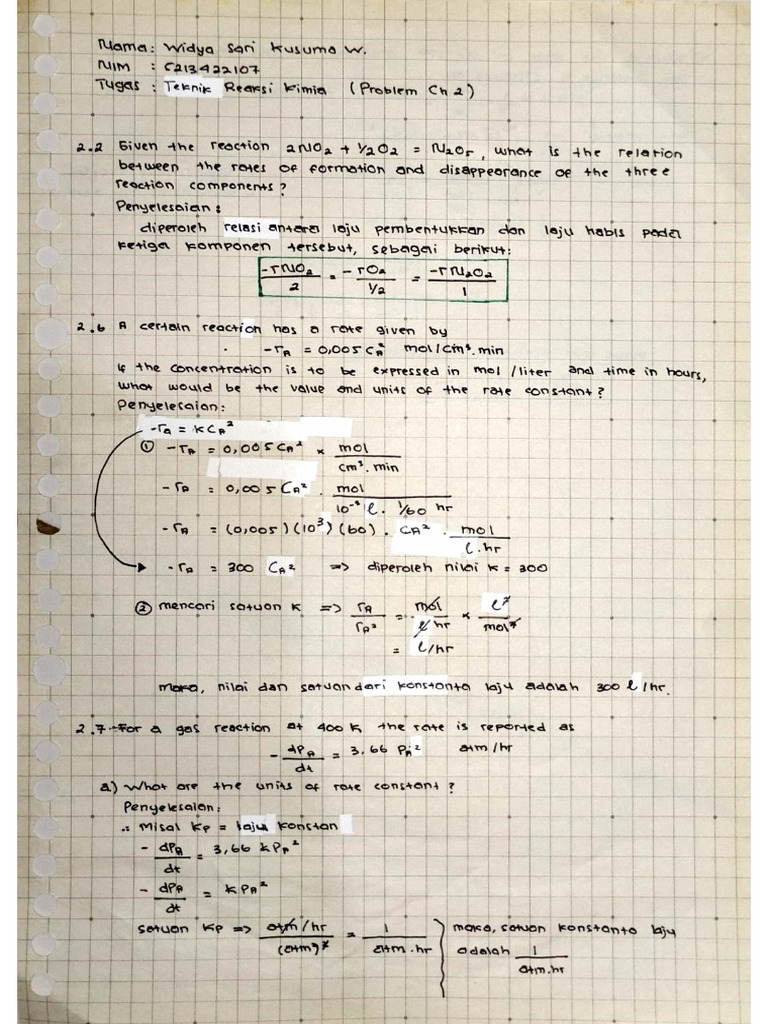 Nama: Widya Sari Kusuma W.
NIM : C213422107
Tugas : Teknik Reaksi Kimia (Problem Ch 2)
2.2 Given the reaction 2NO₂ + 1/2O₂ = N₂O₅, what is the relation
between the rates of formation and disappearance of the three
reaction components?
Penyelesaian:
diperoleh relasi antara laju pembentukkan dan laju habis pada
ketiga komponen tersebut, sebagai berikut:
-rNO₂/2 = -rO₂/1/2 = -rN₂O₂/1
2.6 A certain reaction has a rate given by
-rA = 0,005 CA² mol/cm³.min
If the concentration is to be expressed in mol/liter and time in hours,
what would be the value and units of the rate constant?
Penyelesaian:
-ra = kCA²
① -rA = 0,005 CA² × mol/cm³.min
-rA = 0,005 CA² . mol/10⁻³ l. 1/60 hr
-rA = (0,005)(10³)(60) . CA² . mol/l.hr
-rA = 300 CA² => diperoleh nilai k = 300
② mencari satuan k => rA/rA² = mol/l hr × l²/mol²
= l/hr
maka, nilai dan satuan dari konstanta laju adalah 300 l/hr.
2.7 For a gas reaction at 400 K the rate is reported as
- dPA/dt = 3,66 PA² atm/hr
a) What are the units of rate constant?
Penyelesaian:
∴ Misal Kp = laju konstan
- dPA/dt = 3,66 kPA²
- dPA/dt = kPA²
satuan Kp => atm/hr/(atm)² = 1/atm.hr maka, satuan konstanta laju
adalah 1/atm.hr